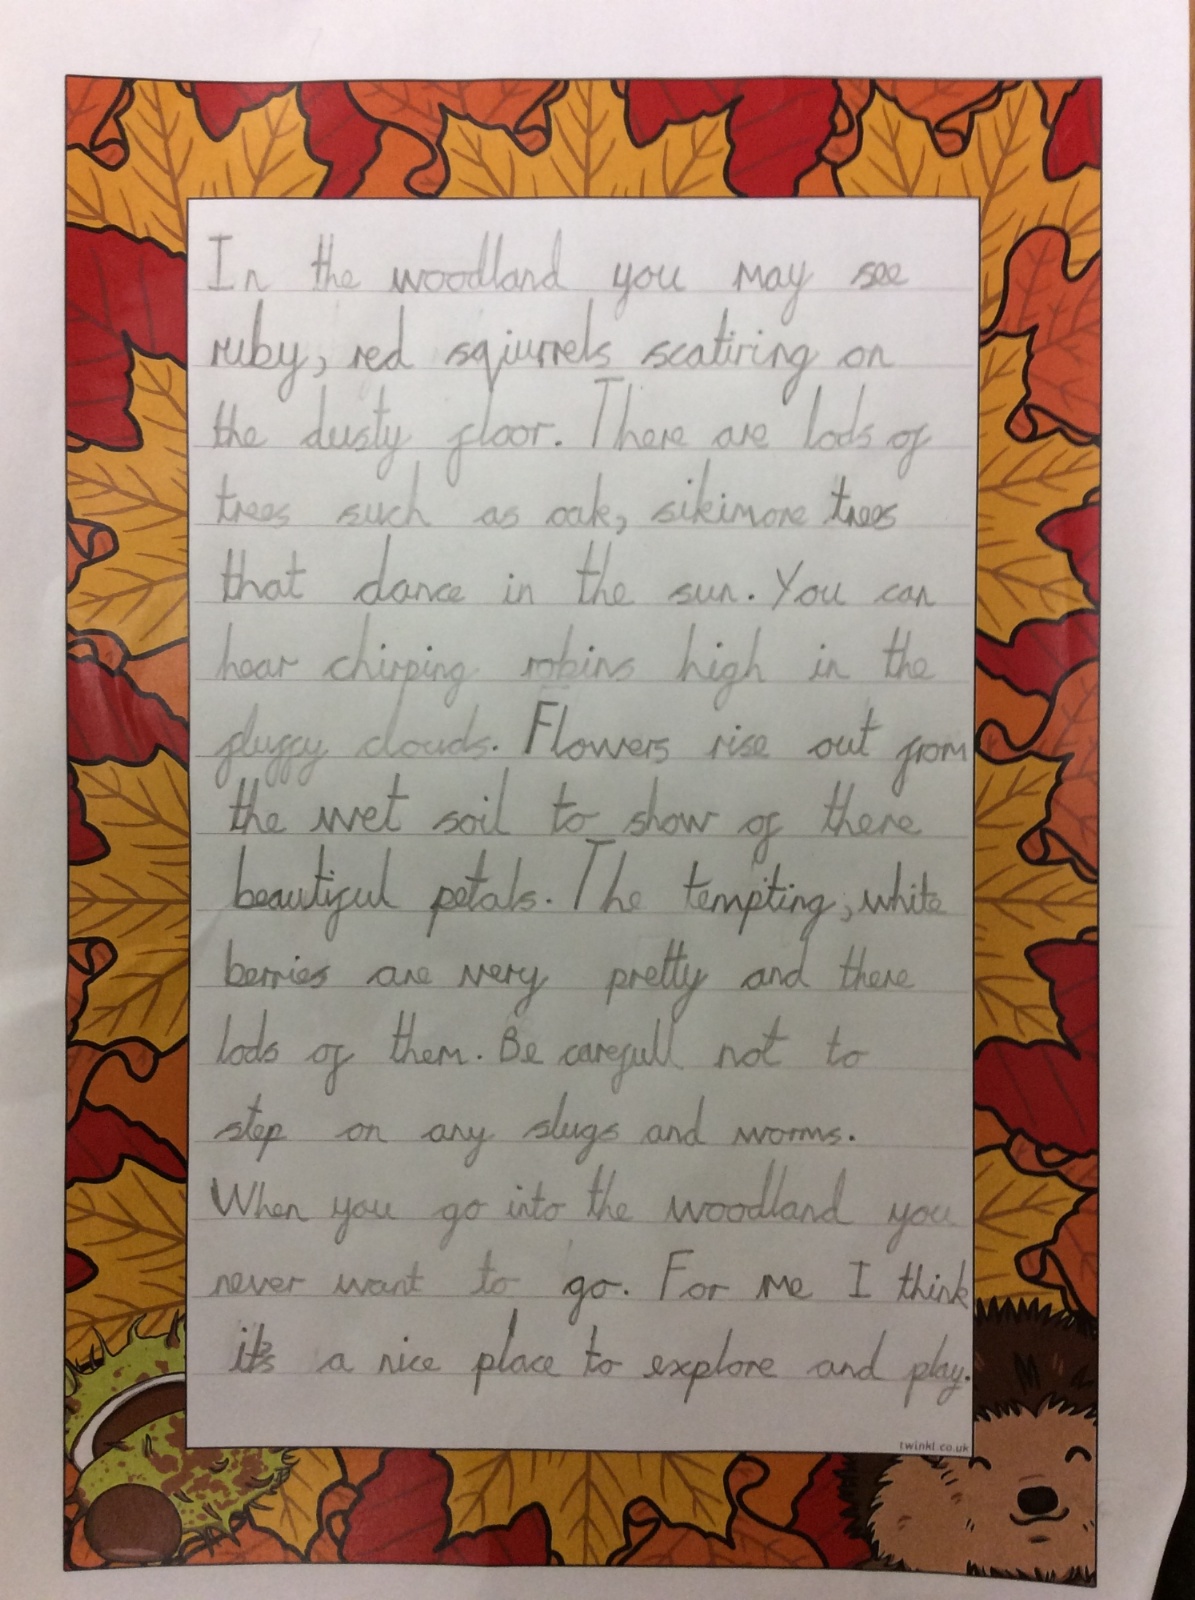 In the woodland you may see
ruby, red sqiurrels scatiring on
the dusty floor. There are lods of
trees such as oak, sikimore trees
that dance in the sun. You can
hear chirping robins high in the
fluffy clouds. Flowers rise out from
the wet soil to show of there
beautiful petals. The tempting, white
berries are very pretty and there
lods of them. Be carefull not to
step on any slugs and worms.
When you go into the woodland you
never want to go. For me I think
it's a nice place to explore and play.
twinkl.co.uk